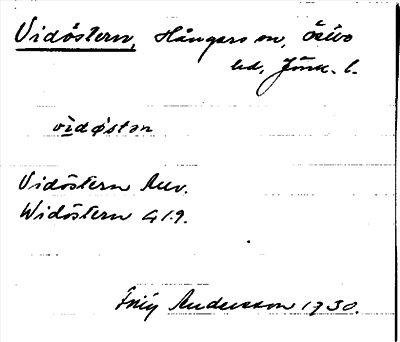 Vidöstern, Hångers sn, Östbo
hd, Jönk. l.
vìdǿstən
Vidöstern Auv.
Widöstern G 19.
Andersson 1930.